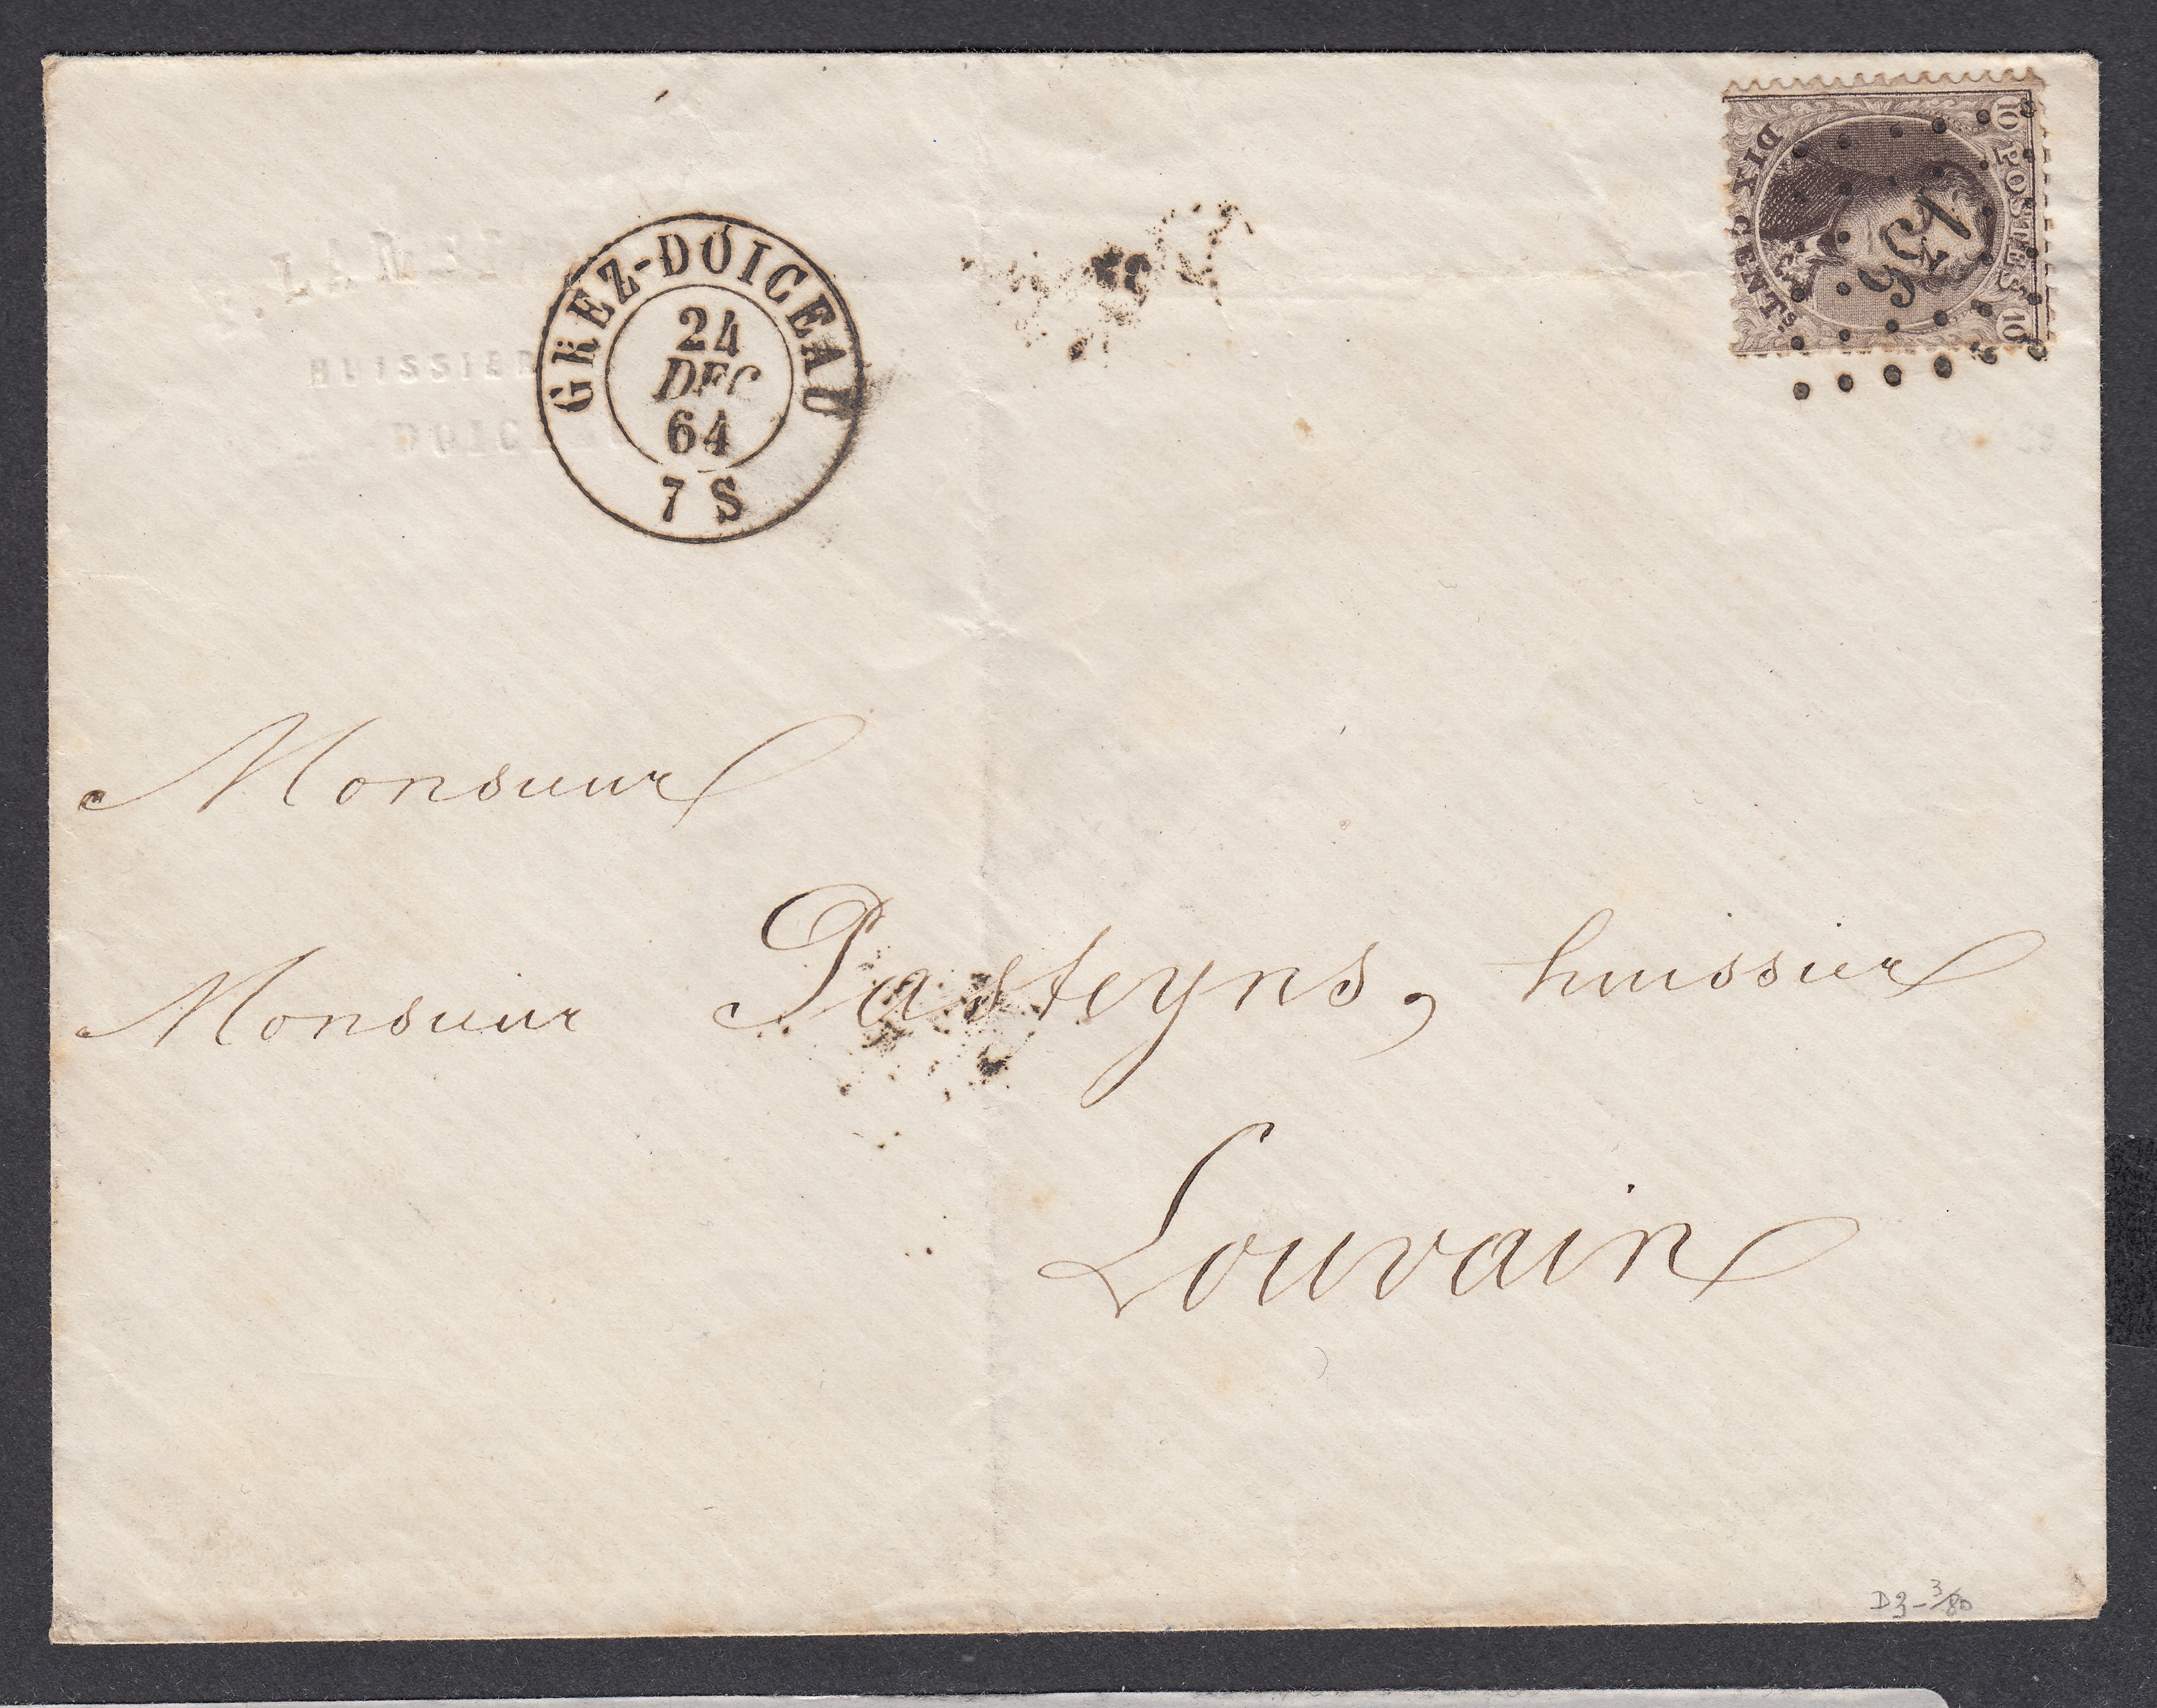 HUISSIER
DOICEAU
GREZ-DOICEAU
24
DEC
64
7 S
10 POSTES 10
DIX CENTS
Monsieur
Monsieur Pasteyns, huissier
Louvain